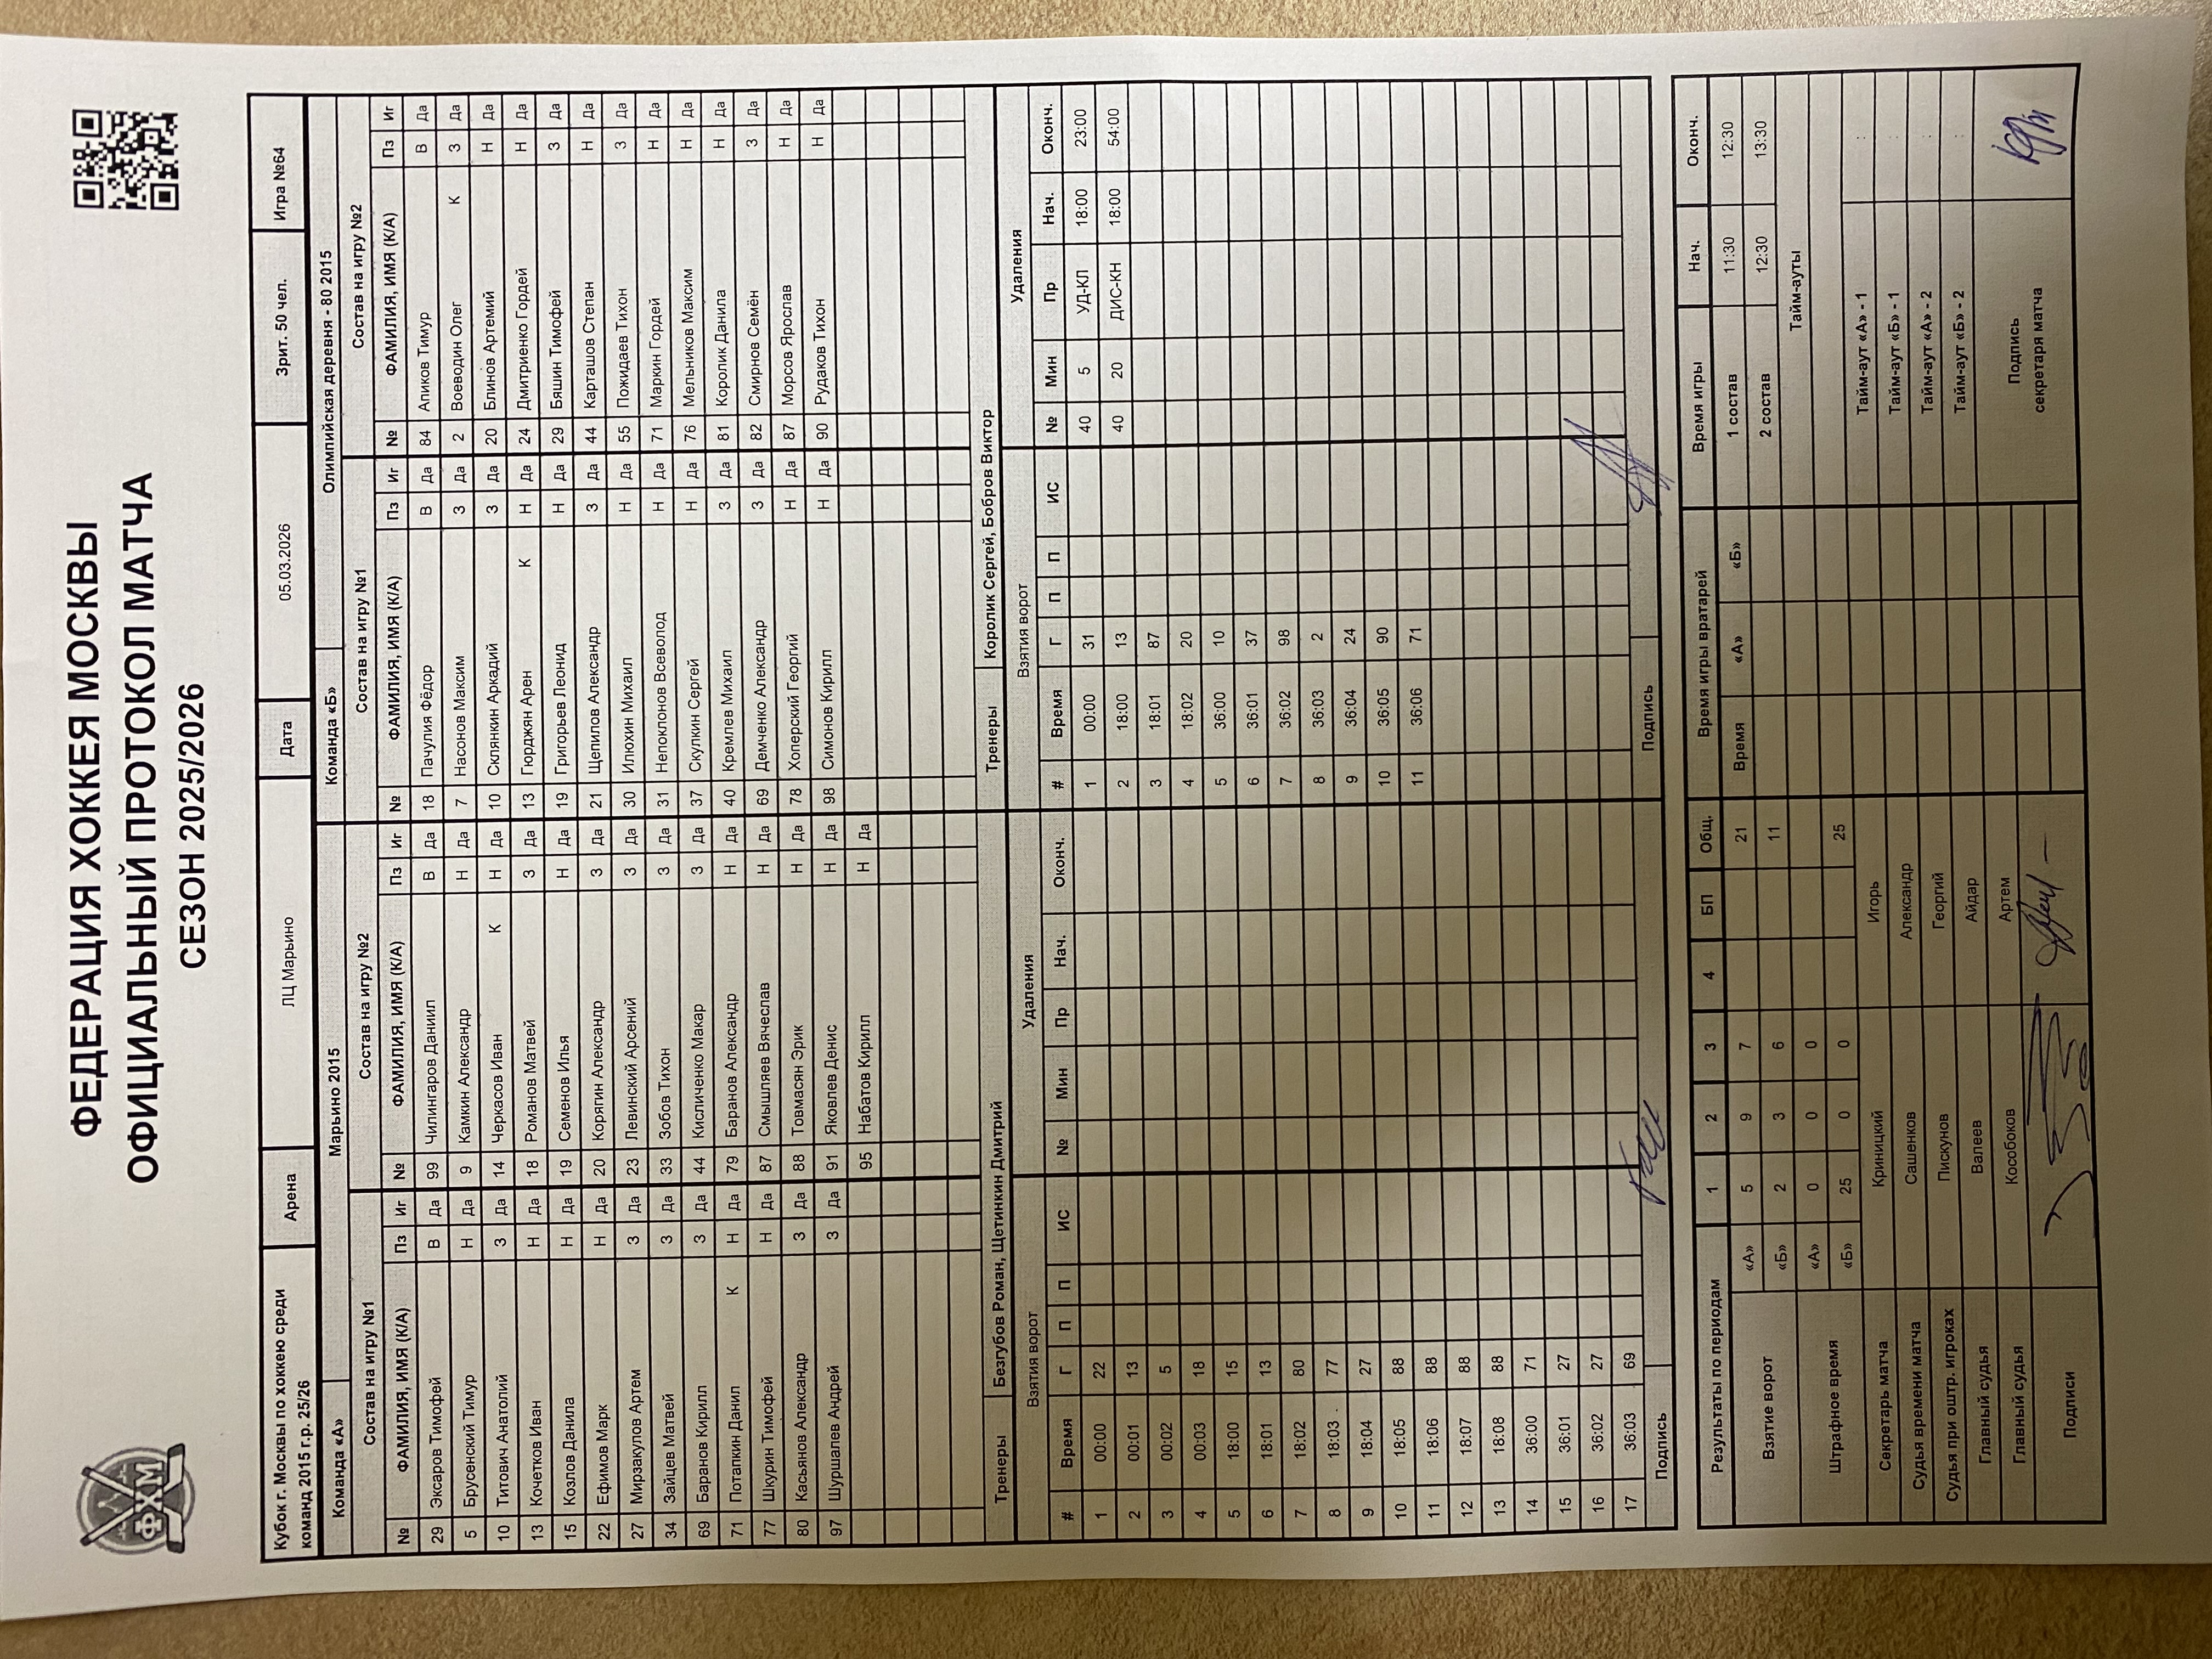 ФЕДЕРАЦИЯ ХОККЕЯ МОСКВЫ
ОФИЦИАЛЬНЫЙ ПРОТОКОЛ МАТЧА
СЕЗОН 2025/2026
ФХМ
Кубок г. Москвы по хоккею среди команд 2015 г.р. 25/26 Арена ЛЦ Марьино Дата 05.03.2026 Зрит. 50 чел. Игра №64
Команда «А» Марьино 2015 Команда «Б» Олимпийская деревня - 80 2015
Состав на игру №1 Состав на игру №2 Состав на игру №1 Состав на игру №2
№ ФАМИЛИЯ, ИМЯ (К/А) Пз Иг № ФАМИЛИЯ, ИМЯ (К/А) Пз Иг № ФАМИЛИЯ, ИМЯ (К/А) Пз Иг № ФАМИЛИЯ, ИМЯ (К/А) Пз Иг
29 Эксаров Тимофей В Да 99 Чилингаров Даниил В Да 18 Пачулия Фёдор В Да 84 Апиков Тимур В Да
5 Брусенский Тимур Н Да 9 Камкин Александр Н Да 7 Насонов Максим З Да 2 Воеводин Олег К З Да
10 Титович Анатолий З Да 14 Черкасов Иван К Н Да 10 Склянкин Аркадий З Да 20 Блинов Артемий Н Да
13 Кочетков Иван Н Да 18 Романов Матвей З Да 13 Гюрджян Арен К Н Да 24 Дмитриенко Гордей Н Да
15 Козлов Данила Н Да 19 Семенов Илья Н Да 19 Григорьев Леонид Н Да 29 Бяшин Тимофей З Да
22 Ефимов Марк Н Да 20 Корягин Александр З Да 21 Щепилов Александр З Да 44 Карташов Степан Н Да
27 Мирзакулов Артем З Да 23 Левинский Арсений З Да 30 Илюхин Михаил Н Да 55 Пожидаев Тихон З Да
34 Зайцев Матвей З Да 33 Зобов Тихон З Да 31 Непоклонов Всеволод Н Да 71 Маркин Гордей Н Да
69 Баранов Кирилл З Да 44 Кисличенко Макар З Да 37 Скулкин Сергей Н Да 76 Мельников Максим Н Да
71 Потапкин Данил К Н Да 79 Баранов Александр Н Да 40 Кремлев Михаил З Да 81 Королик Данила Н Да
77 Шкурин Тимофей Н Да 87 Смышляев Вячеслав Н Да 69 Демченко Александр З Да 82 Смирнов Семён З Да
80 Касьянов Александр З Да 88 Товмасян Эрик Н Да 78 Хоперский Георгий Н Да 87 Морсов Ярослав Н Да
97 Шуршалев Андрей З Да 91 Яковлев Денис Н Да 98 Симонов Кирилл Н Да 90 Рудаков Тихон Н Да
95 Набатов Кирилл Н Да
Тренеры Безгубов Роман, Щетинкин Дмитрий Тренеры Королик Сергей, Бобров Виктор
Взятия ворот Удаления Взятия ворот Удаления
# Время Г П П ИС № Мин Пр Нач. Оконч. # Время Г П П ИС № Мин Пр Нач. Оконч.
1 00:00 22 1 00:00 31 40 5 УД-КЛ 18:00 23:00
2 00:01 13 2 18:00 13 40 20 ДИС-КН 18:00 54:00
3 00:02 5 3 18:01 87
4 00:03 18 4 18:02 20
5 18:00 15 5 36:00 10
6 18:01 13 6 36:01 37
7 18:02 80 7 36:02 98
8 18:03 77 8 36:03 2
9 18:04 27 9 36:04 24
10 18:05 88 10 36:05 90
11 18:06 88 11 36:06 71
12 18:07 88
13 18:08 88
14 36:00 71
15 36:01 27
16 36:02 27
17 36:03 69
Подпись Подпись
Результаты по периодам 1 2 3 4 БП Общ. Время игры вратарей Время игры Нач. Оконч.
Взятие ворот «А» 5 9 7 21 Время «А» «Б» 1 состав 11:30 12:30
«Б» 2 3 6 11 2 состав 12:30 13:30
Штрафное время «А» 0 0 0 Тайм-ауты
«Б» 25 0 0 25
Секретарь матча Криницкий Игорь Тайм-аут «А» - 1 :
Судья времени матча Сашенков Александр Тайм-аут «Б» - 1 :
Судья при оштр. игроках Пискунов Георгий Тайм-аут «А» - 2 :
Главный судья Валеев Айдар Тайм-аут «Б» - 2 :
Главный судья Кособоков Артем
Подписи Подпись секретаря матча